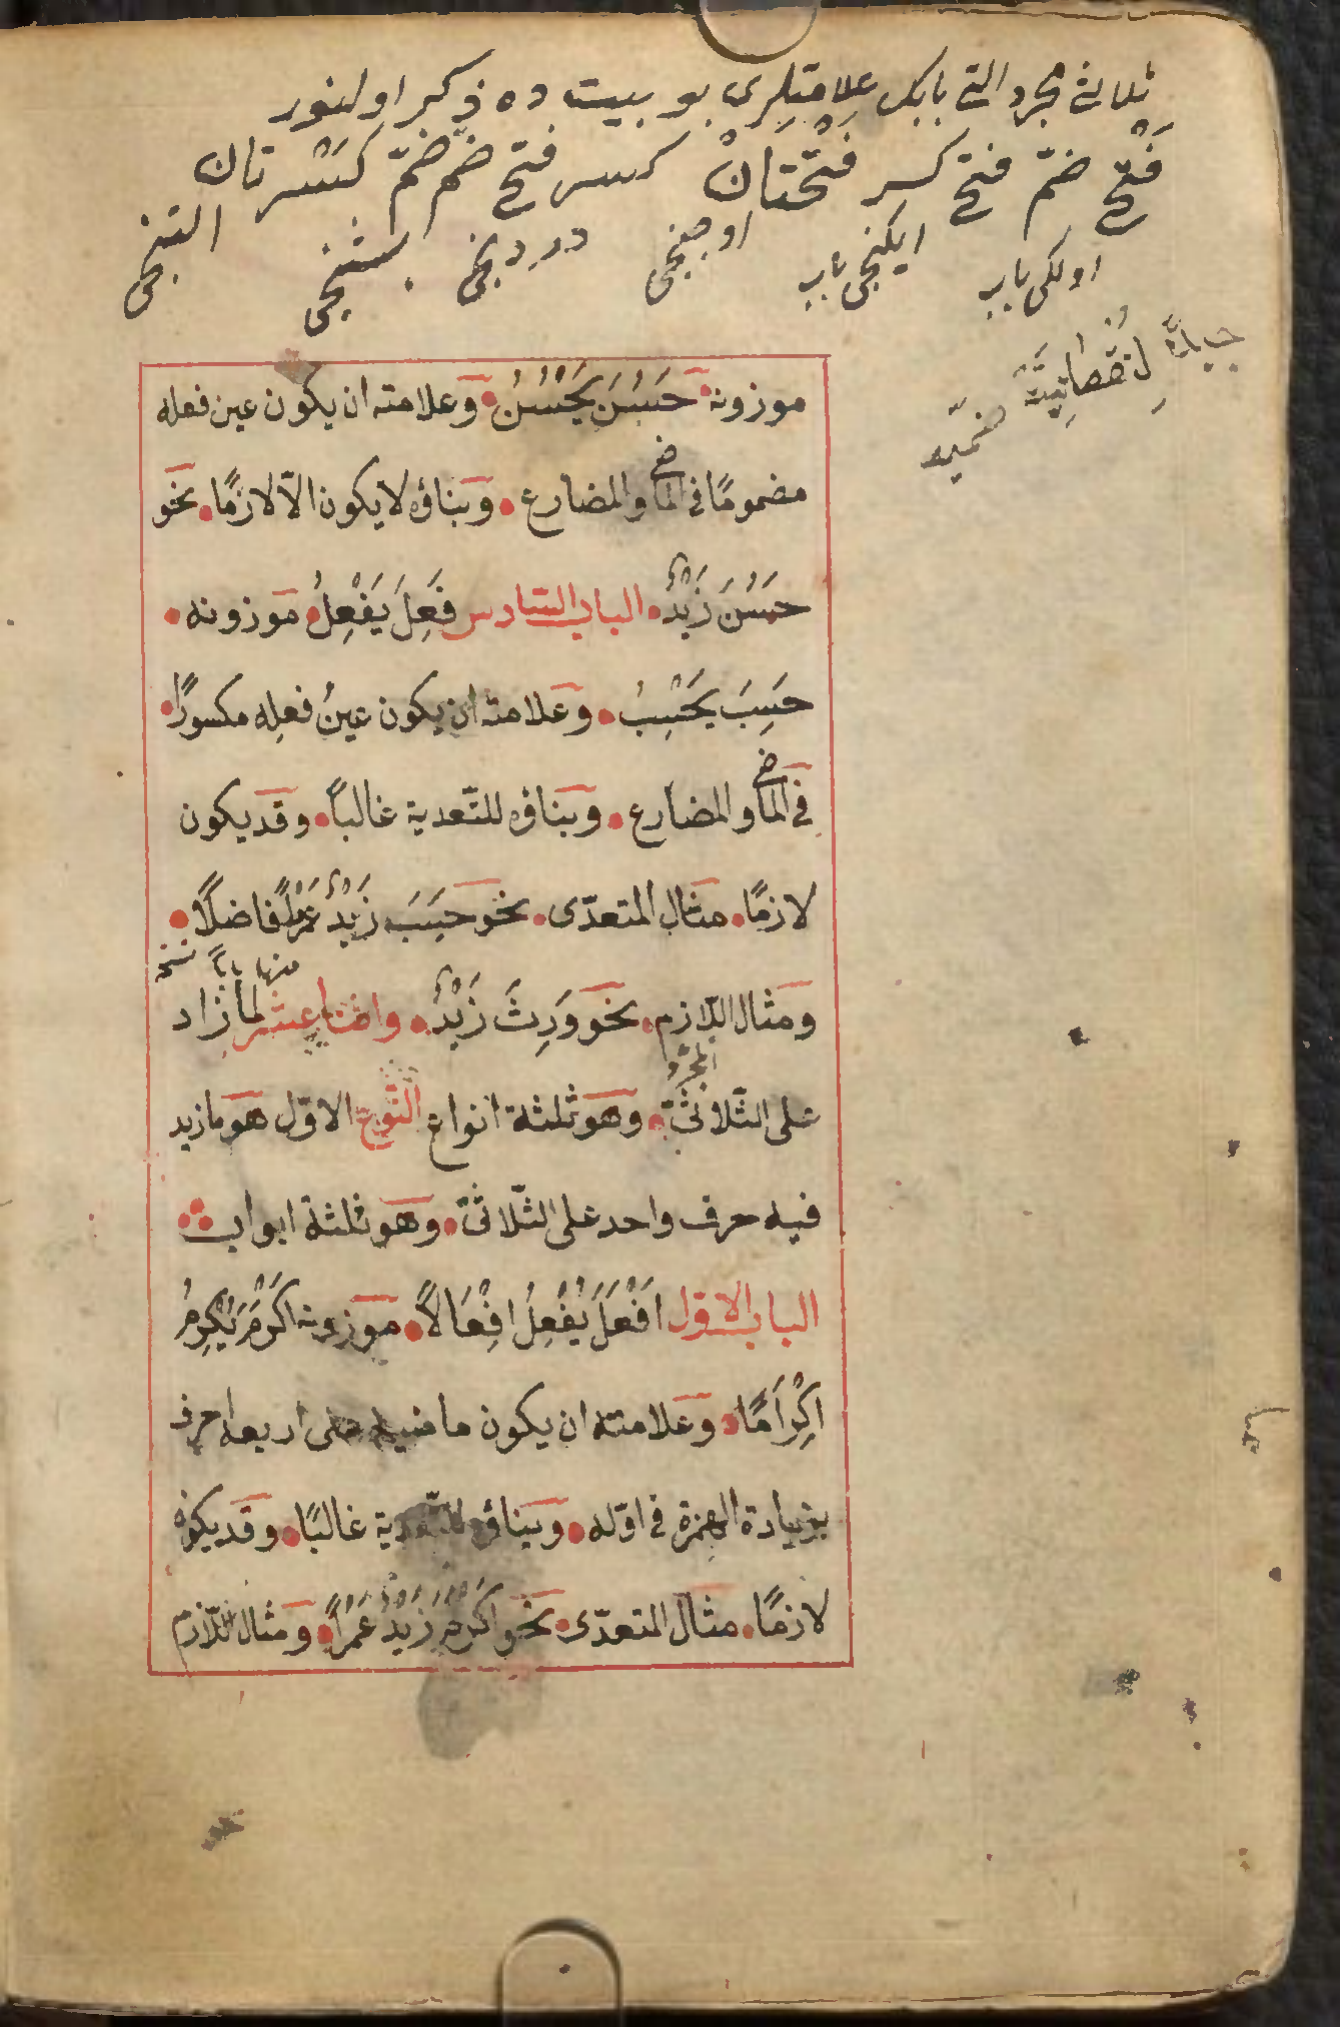 ثلاثئ مجرد التى بابك علامتلرى بو بيت ده ذكر اولنور
فَتْحُ ضمّ فتح كسر فَتْحَتَانْ كسر فتح ضم ضمّ كَسْرتان
اولكى باب ايكنجى باب اوجنجى دردنجى بشنجى التنجى
موزونه حَسُنَ يَحْسُنُ وعلامته ان يكون عين فعله
مضمومًا فى الماضى والمضارع وبناؤه لا يكون الّا لازمًا نحو
حَسُنَ زَيْدٌ الباب السّادس فَعِلَ يَفْعِلُ موزونه
حَسِبَ يَحْسِبُ وعلامته ان يكون عينُ فعلِه مكسورًا
فى الماضى والمضارع وبناؤه للتّعدية غالباً وقد يكون
لازمًا مثال المتعدّى نحو حَسِبَ زَيْدٌ عَمْرًا فاضلًا
منها بابًا نسخه
ومثال اللّازم نحو وَرِثَ زَيْدٌ واثنا عشر لما زاد
المجرّد
على الثّلاثىّ وهو ثلثة انواع النّوع الاوّل هو ما زيد
فيه حرف واحد على الثّلاثىّ وهو ثلثة ابواب
الباب الاوّل اَفْعَلَ يُفْعِلُ اِفْعَالاً موزونه اَكْرَمَ يُكْرِمُ
اِكْرَامًا وعلامته ان يكون ماضيه على اربعة احرف
بزيادة الهمزة فى اوّله وبناؤه للتّعدية غالبًا وقد يكون
لازمًا مثال المتعدّى نحو اَكْرَمَ زَيْدٌ عَمْرًا ومثال اللّازم